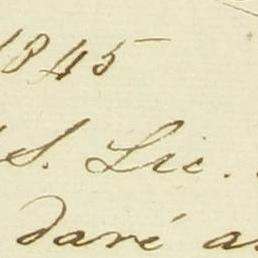 1845
S. Lic.
daré a